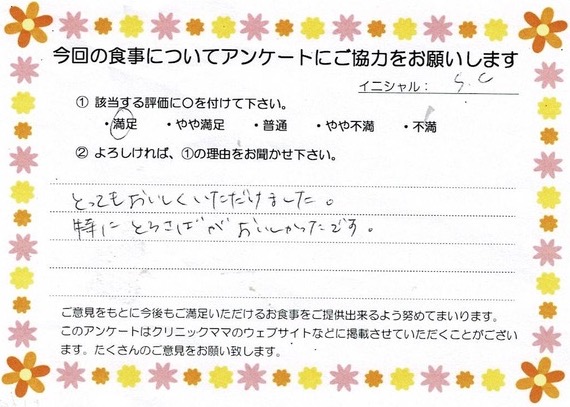 今回の食事についてアンケートにご協力をお願いします
イニシャル： S.C
① 該当する評価に○を付けて下さい。
・満足 ・やや満足 ・普通 ・やや不満 ・不満
② よろしければ、①の理由をお聞かせ下さい。
とってもおいしくいただけました。
特にとろさばがおいしかったです。
ご意見をもとに今後もご満足いただけるお食事をご提供出来るよう努めてまいります。
このアンケートはクリニックママのウェブサイトなどに掲載させていただくことがござい
ます。たくさんのご意見をお願い致します。